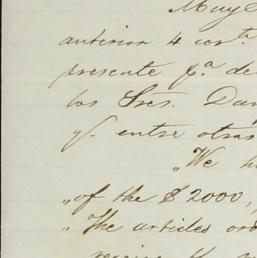 Muy
anterior 4 cor.te
presente p.a de
los Sres. Dan
q/. entre otras
„We h
„of the $2000,
„The articles ord